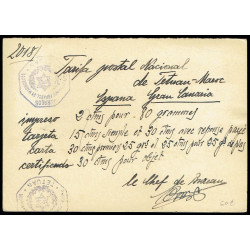 2018/
Tarifa postal Nacional
de Tetuan-Maroc
Espana Gran Canaria
impreso 2 ctms pour 80 grammes
tarjeta 15 ctms simple et 30 ctms avec reponse payé
carta 30 ctms premiers 25 grs et 25 ctms par 25 grs de plus
certificado 30 ctms pour objet
le Chef de Bureau
TETUAN